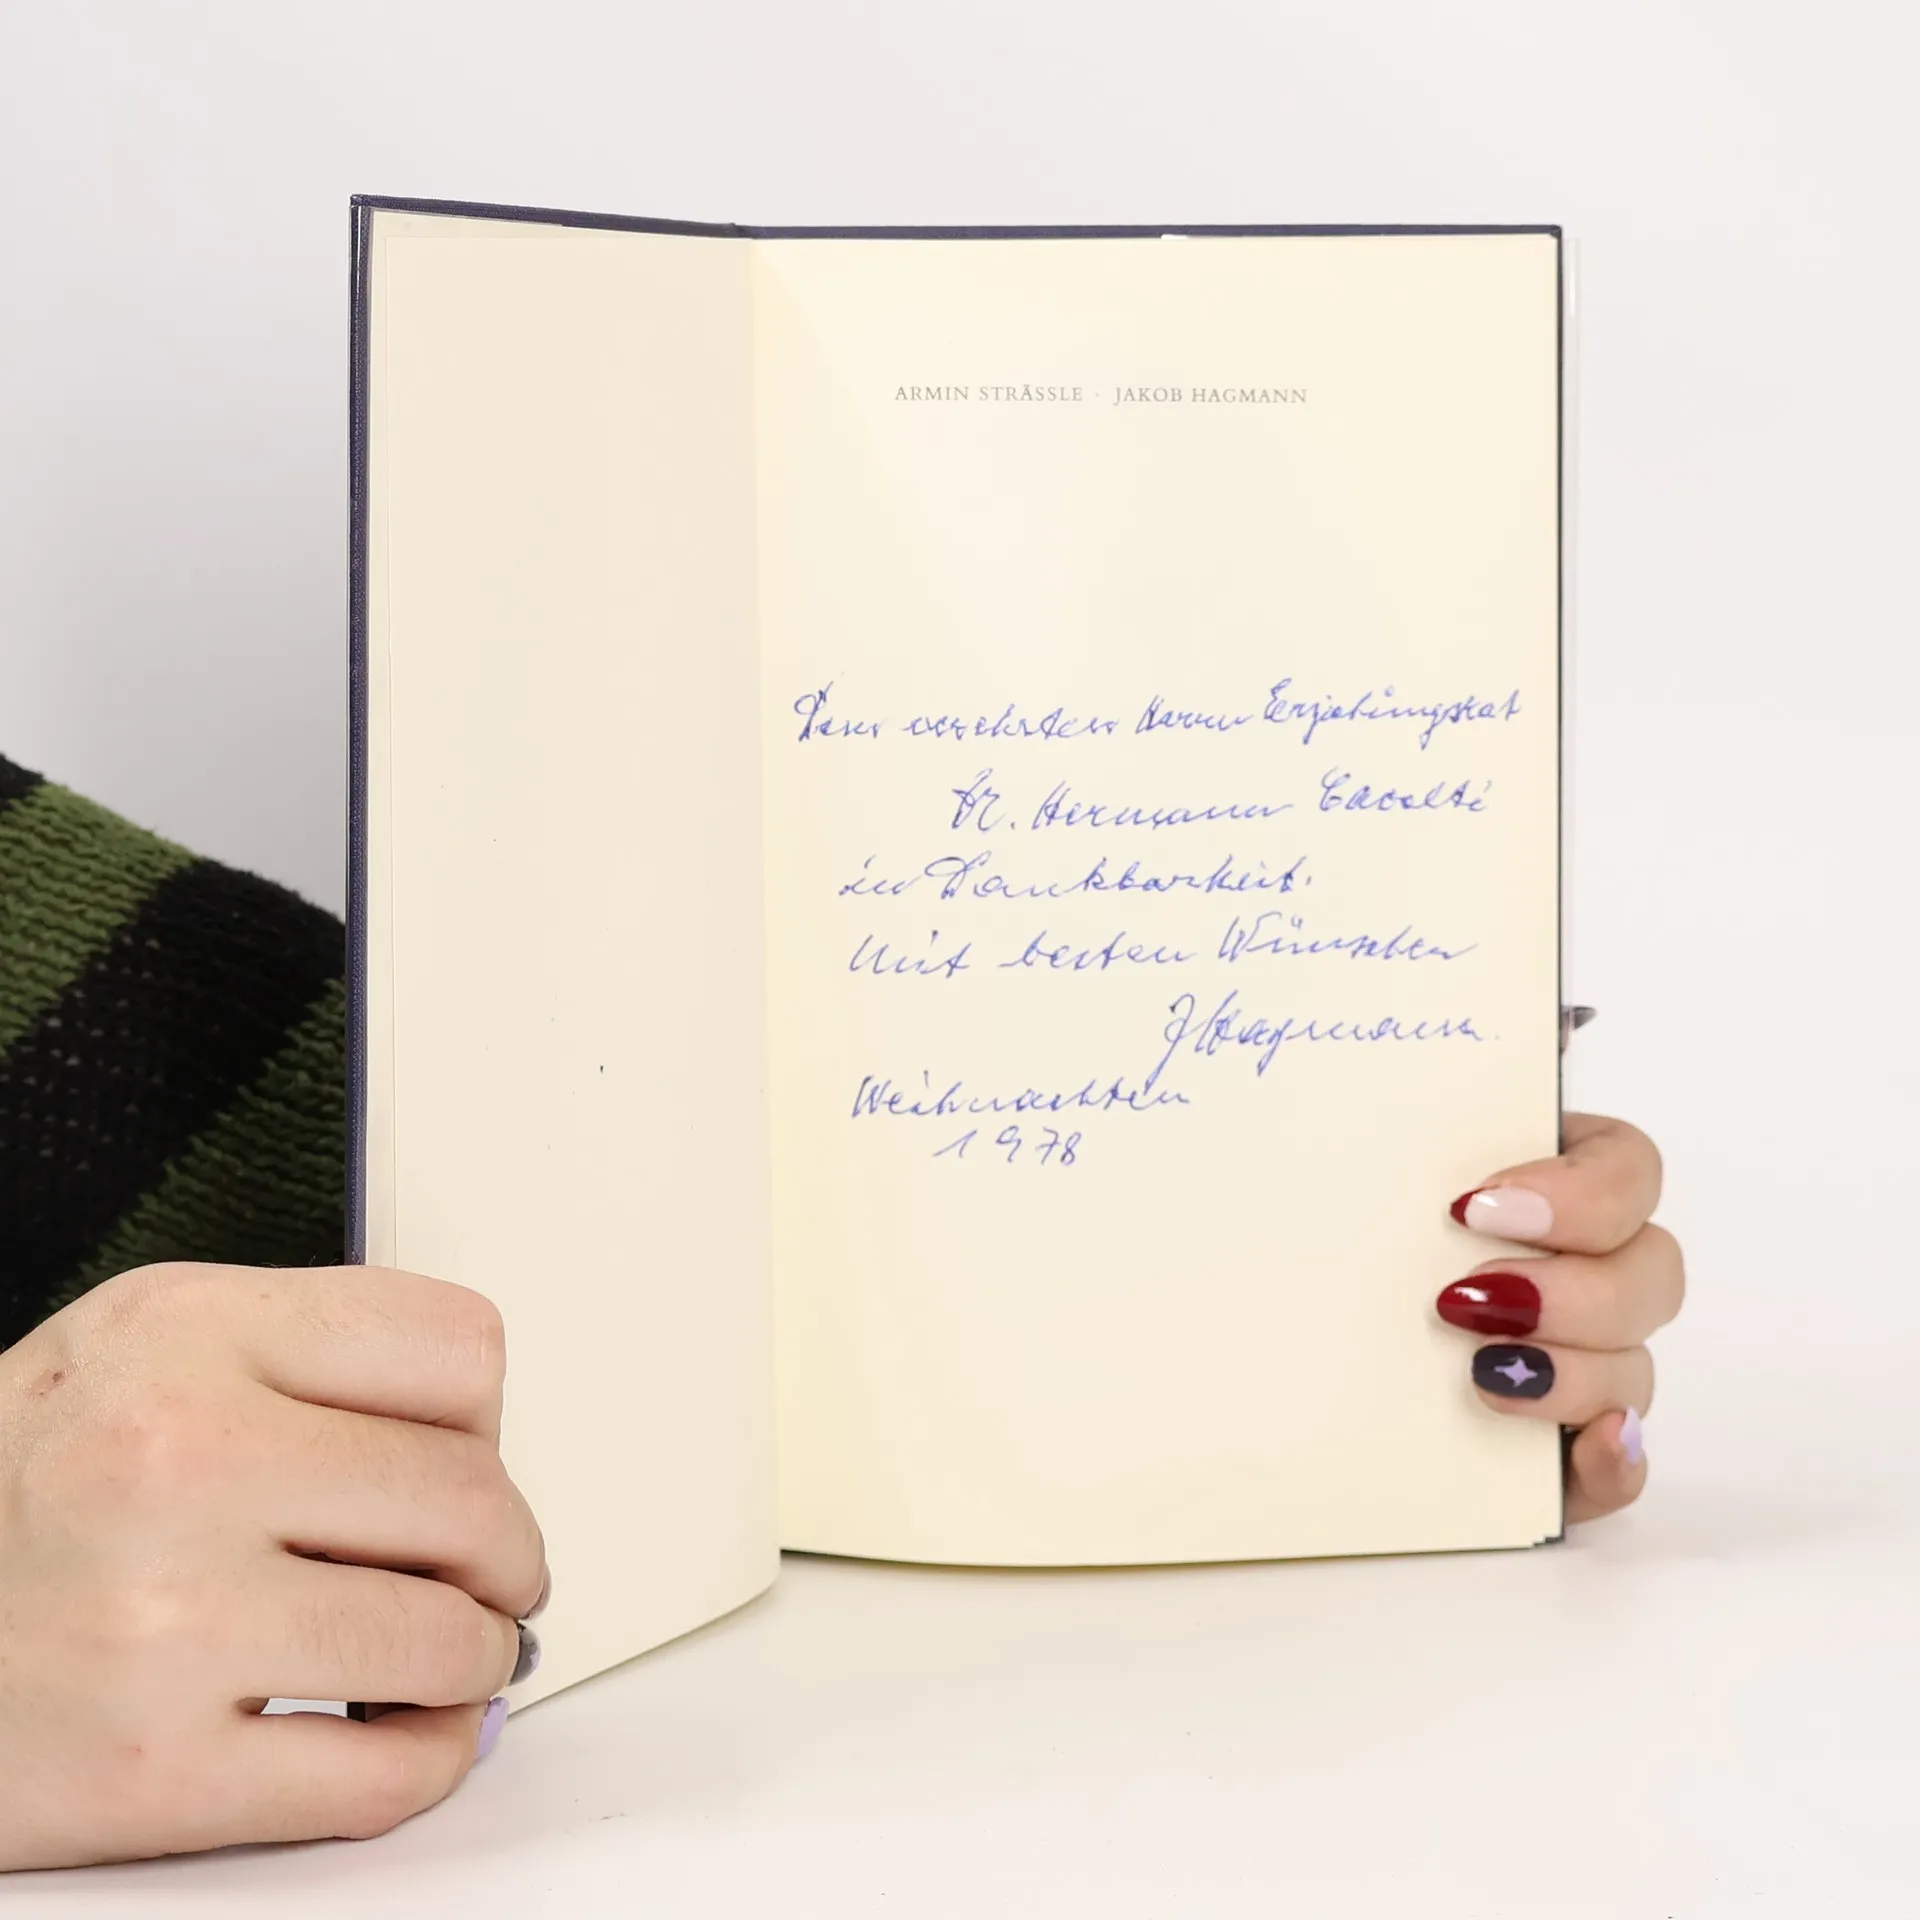 ARMIN STRÄSSLE · JAKOB HAGMANN
Dem verehrten Herrn Erziehungsrat
Dr. Hermann
in Dankbarkeit.
Mit besten Wünschen
J Hagmann.
Weihnachten
1978